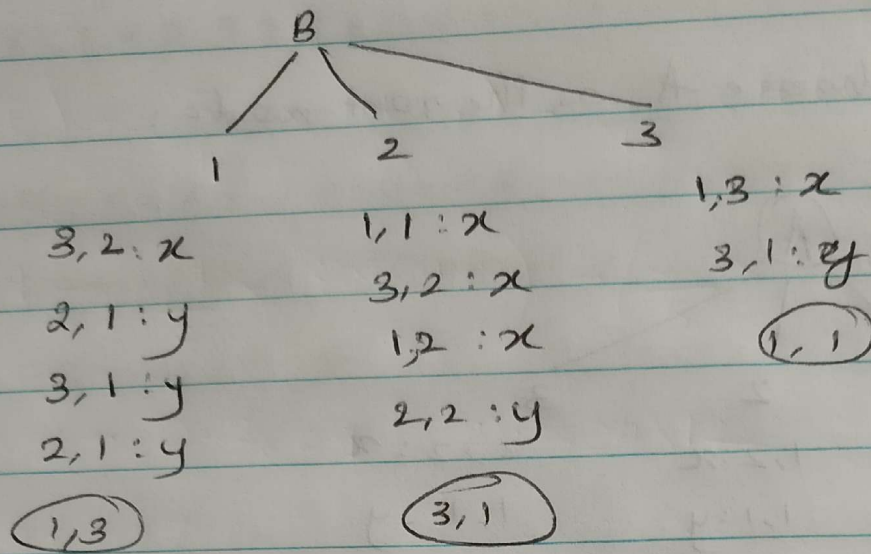 B
1 2 3
3,2 : x
2,1 : y
3,1 : y
2,1 : y
1,3
1,1 : x
3,2 : x
1,2 : x
2,2 : y
3,1
1,3 : x
3,1 : y
1,1